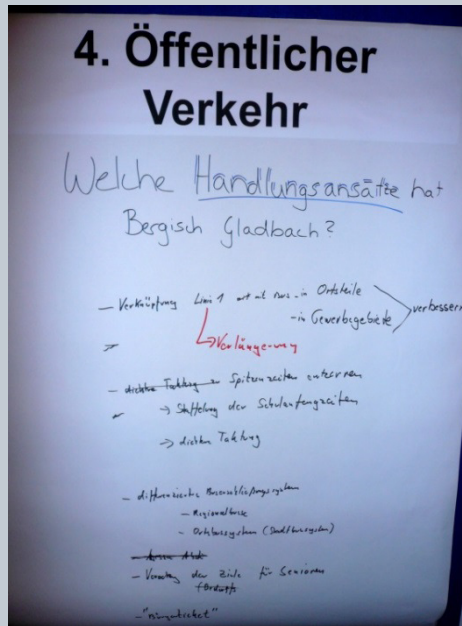 4. Öffentlicher
Verkehr
Welche Handlungsansätze hat
Bergisch Gladbach?
- Verknüpfung Linie 1 mit Bus - in Ortsteile
- in Gewerbegebiete
verbessern
→ Verlängerung
- dichtere Taktung Spitzenzeiten entzerren
→ Staffelung der Schulanfangzeiten
→ dichtere Taktung
- differenziertes
- Regionalbusse
- Ortsbussystem (Stadtbussystem)
- der Ziele für Senioren
- "Bürgerticket"